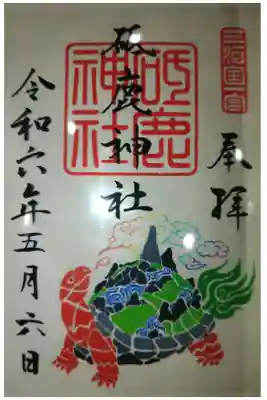 三河国一宮
奉拝
砥鹿神社
砥鹿
神社
令和六年五月六日